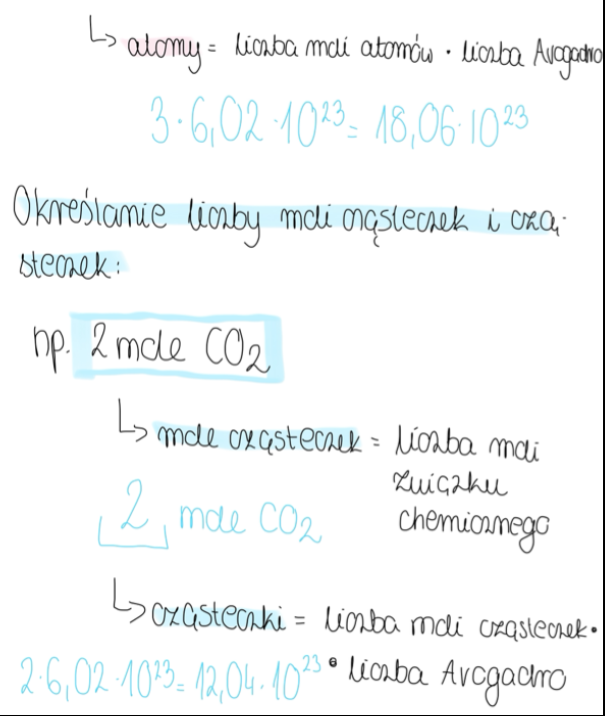 ↳ atomy = liczba moli atomów · liczba Avogadro
3 · 6,02 · 10²³ = 18,06 · 10²³
Określanie liczby moli cząsteczek i czą-
steczek:
np. 2 mole CO₂
↳ mole cząsteczek = liczba moli
związku
chemicznego
2 mole CO₂
↳ cząsteczki = liczba moli cząsteczek ·
2 · 6,02 · 10²³ = 12,04 · 10²³ · liczba Avogadro